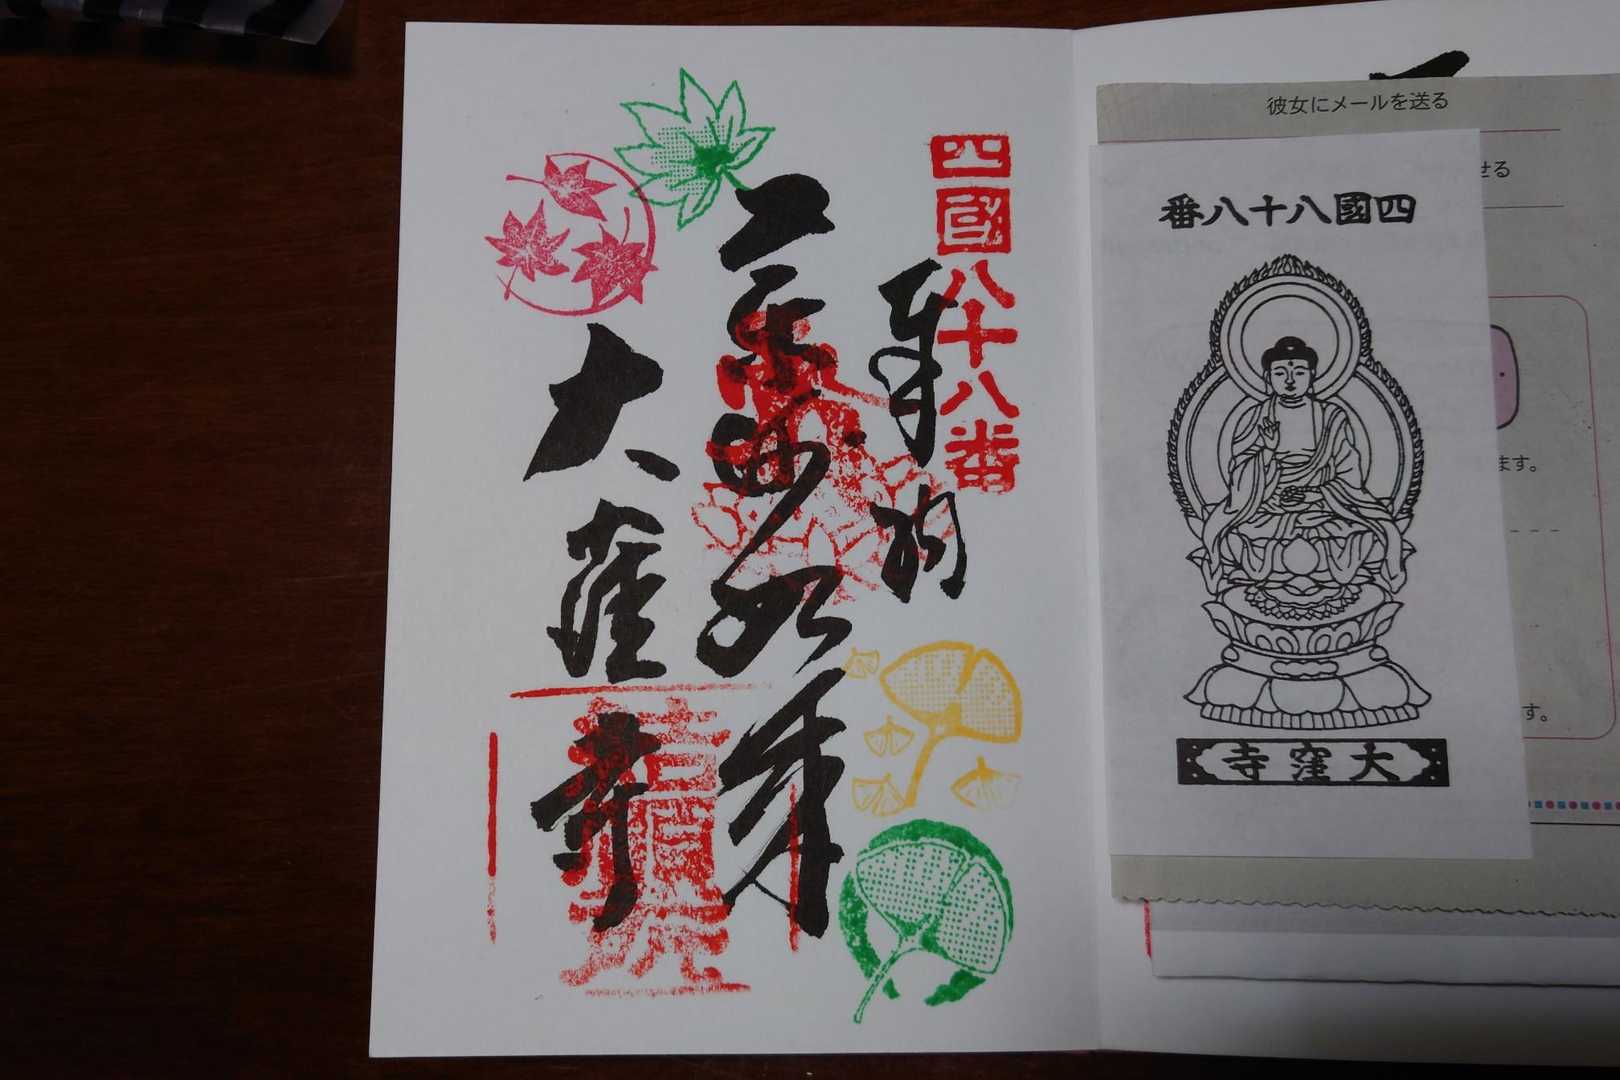 四國八十八番
奉納
如来
大窪寺
彼女にメールを送る
せる
四國八十八番
ます。
す。
大窪寺